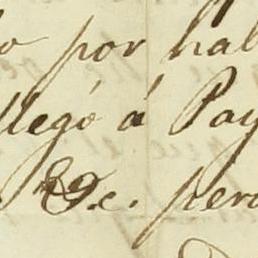 o por hab
llegó á Pay
&c. pero